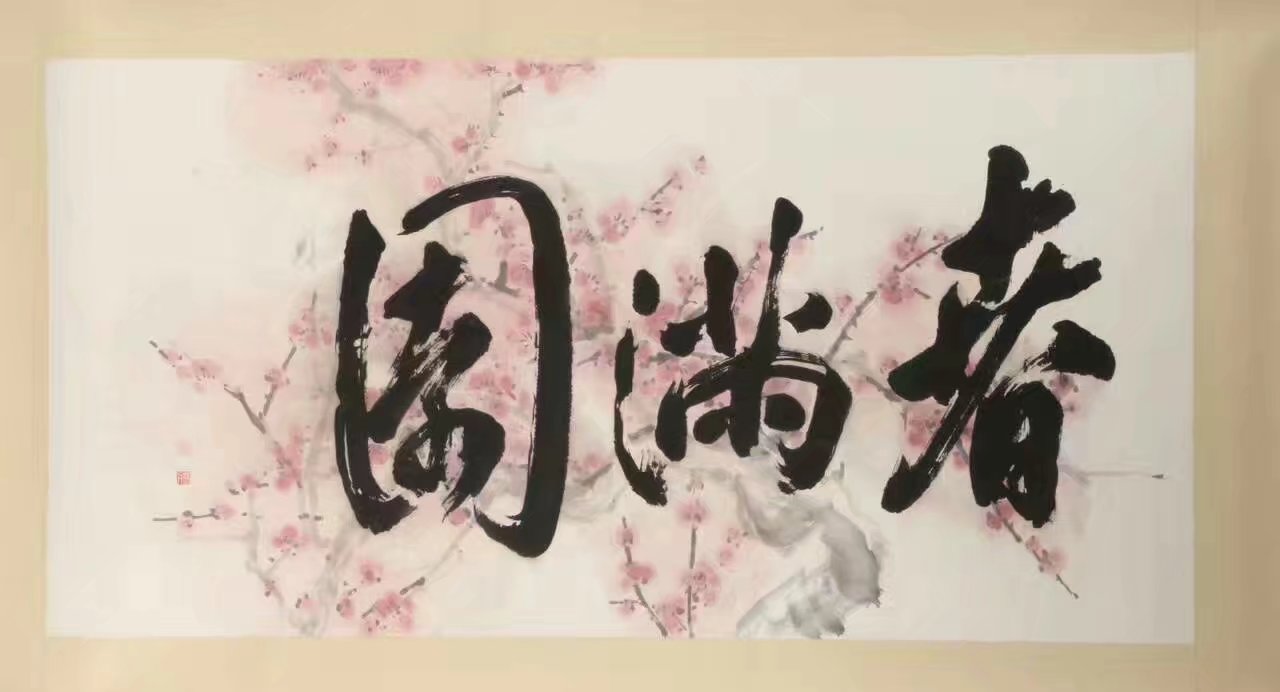 春滿園